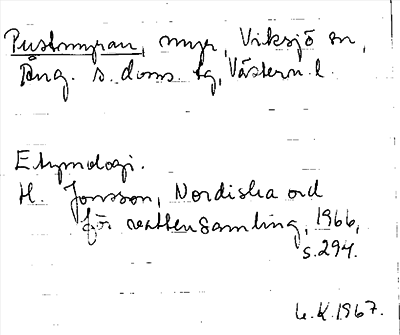 Pustmyran, myr, Viksjö sn,
Ång. s. doms. tg, Västern. l.
Etymologi.
H. Jonsson, Nordiska ord
för vattensamling, 1966,
s. 294.
L.K. 1967.